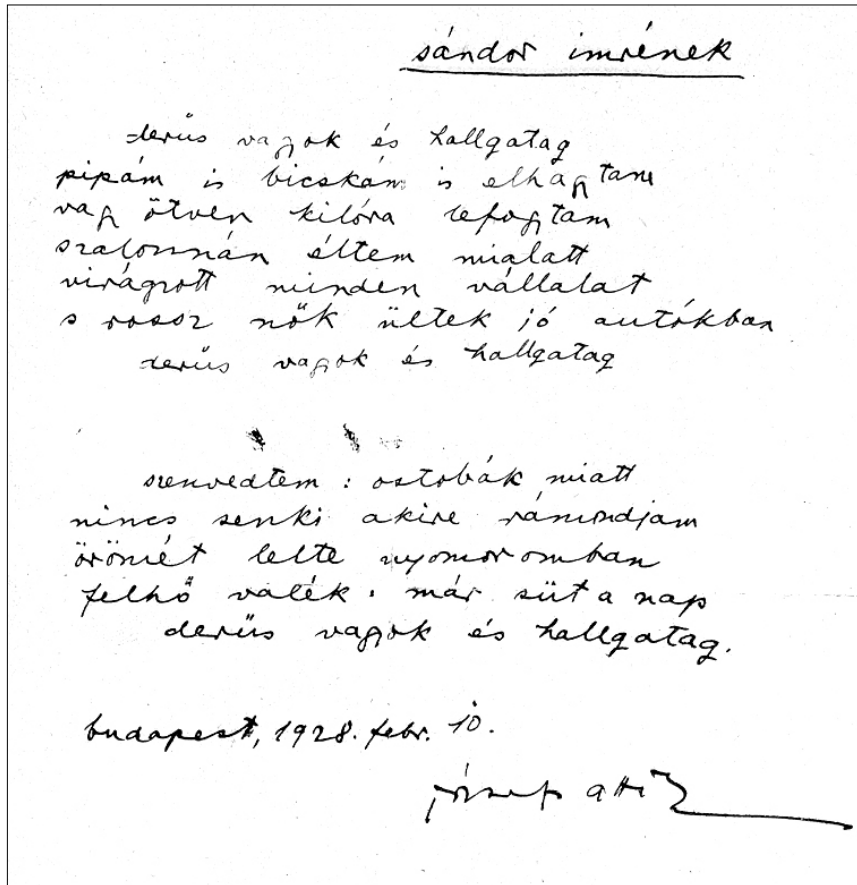 sándor imrének
derüs vagyok és hallgatag
pipám is bicskám is elhagytam
vagy ötven kilóra lefogytam
szalonnán éltem mialatt
virágzott minden vállalat
s rossz nők ültek jó autókban
derüs vagyok és hallgatag
szenvedtem : ostobák miatt
nincs senki akire rámondjam
örömét lelte nyomoromban
felhő valék . már süt a nap
derüs vagyok és hallgatag.
budapest, 1928. febr. 10.
józsef attila